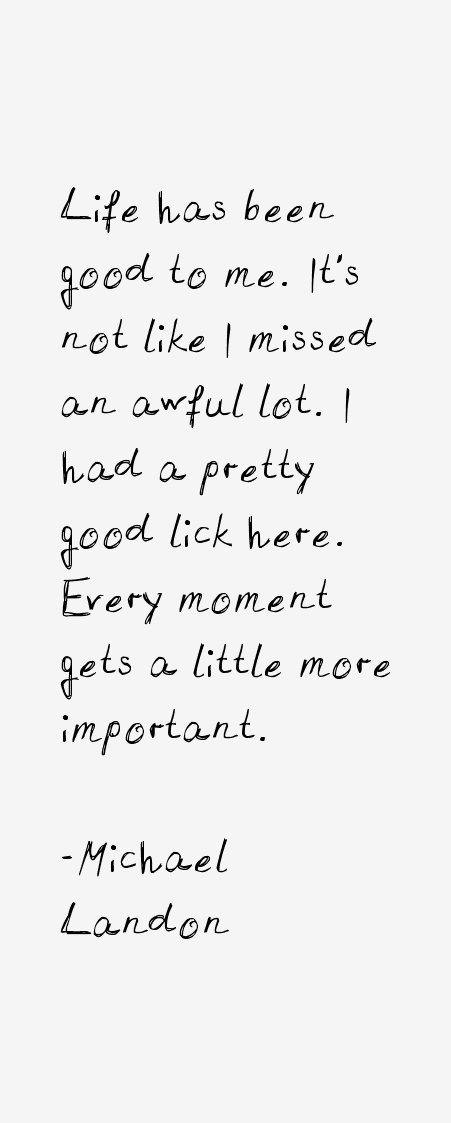 Life has been
good to me. It's
not like I missed
an awful lot. I
had a pretty
good lick here.
Every moment
gets a little more
important.
-Michael
Landon